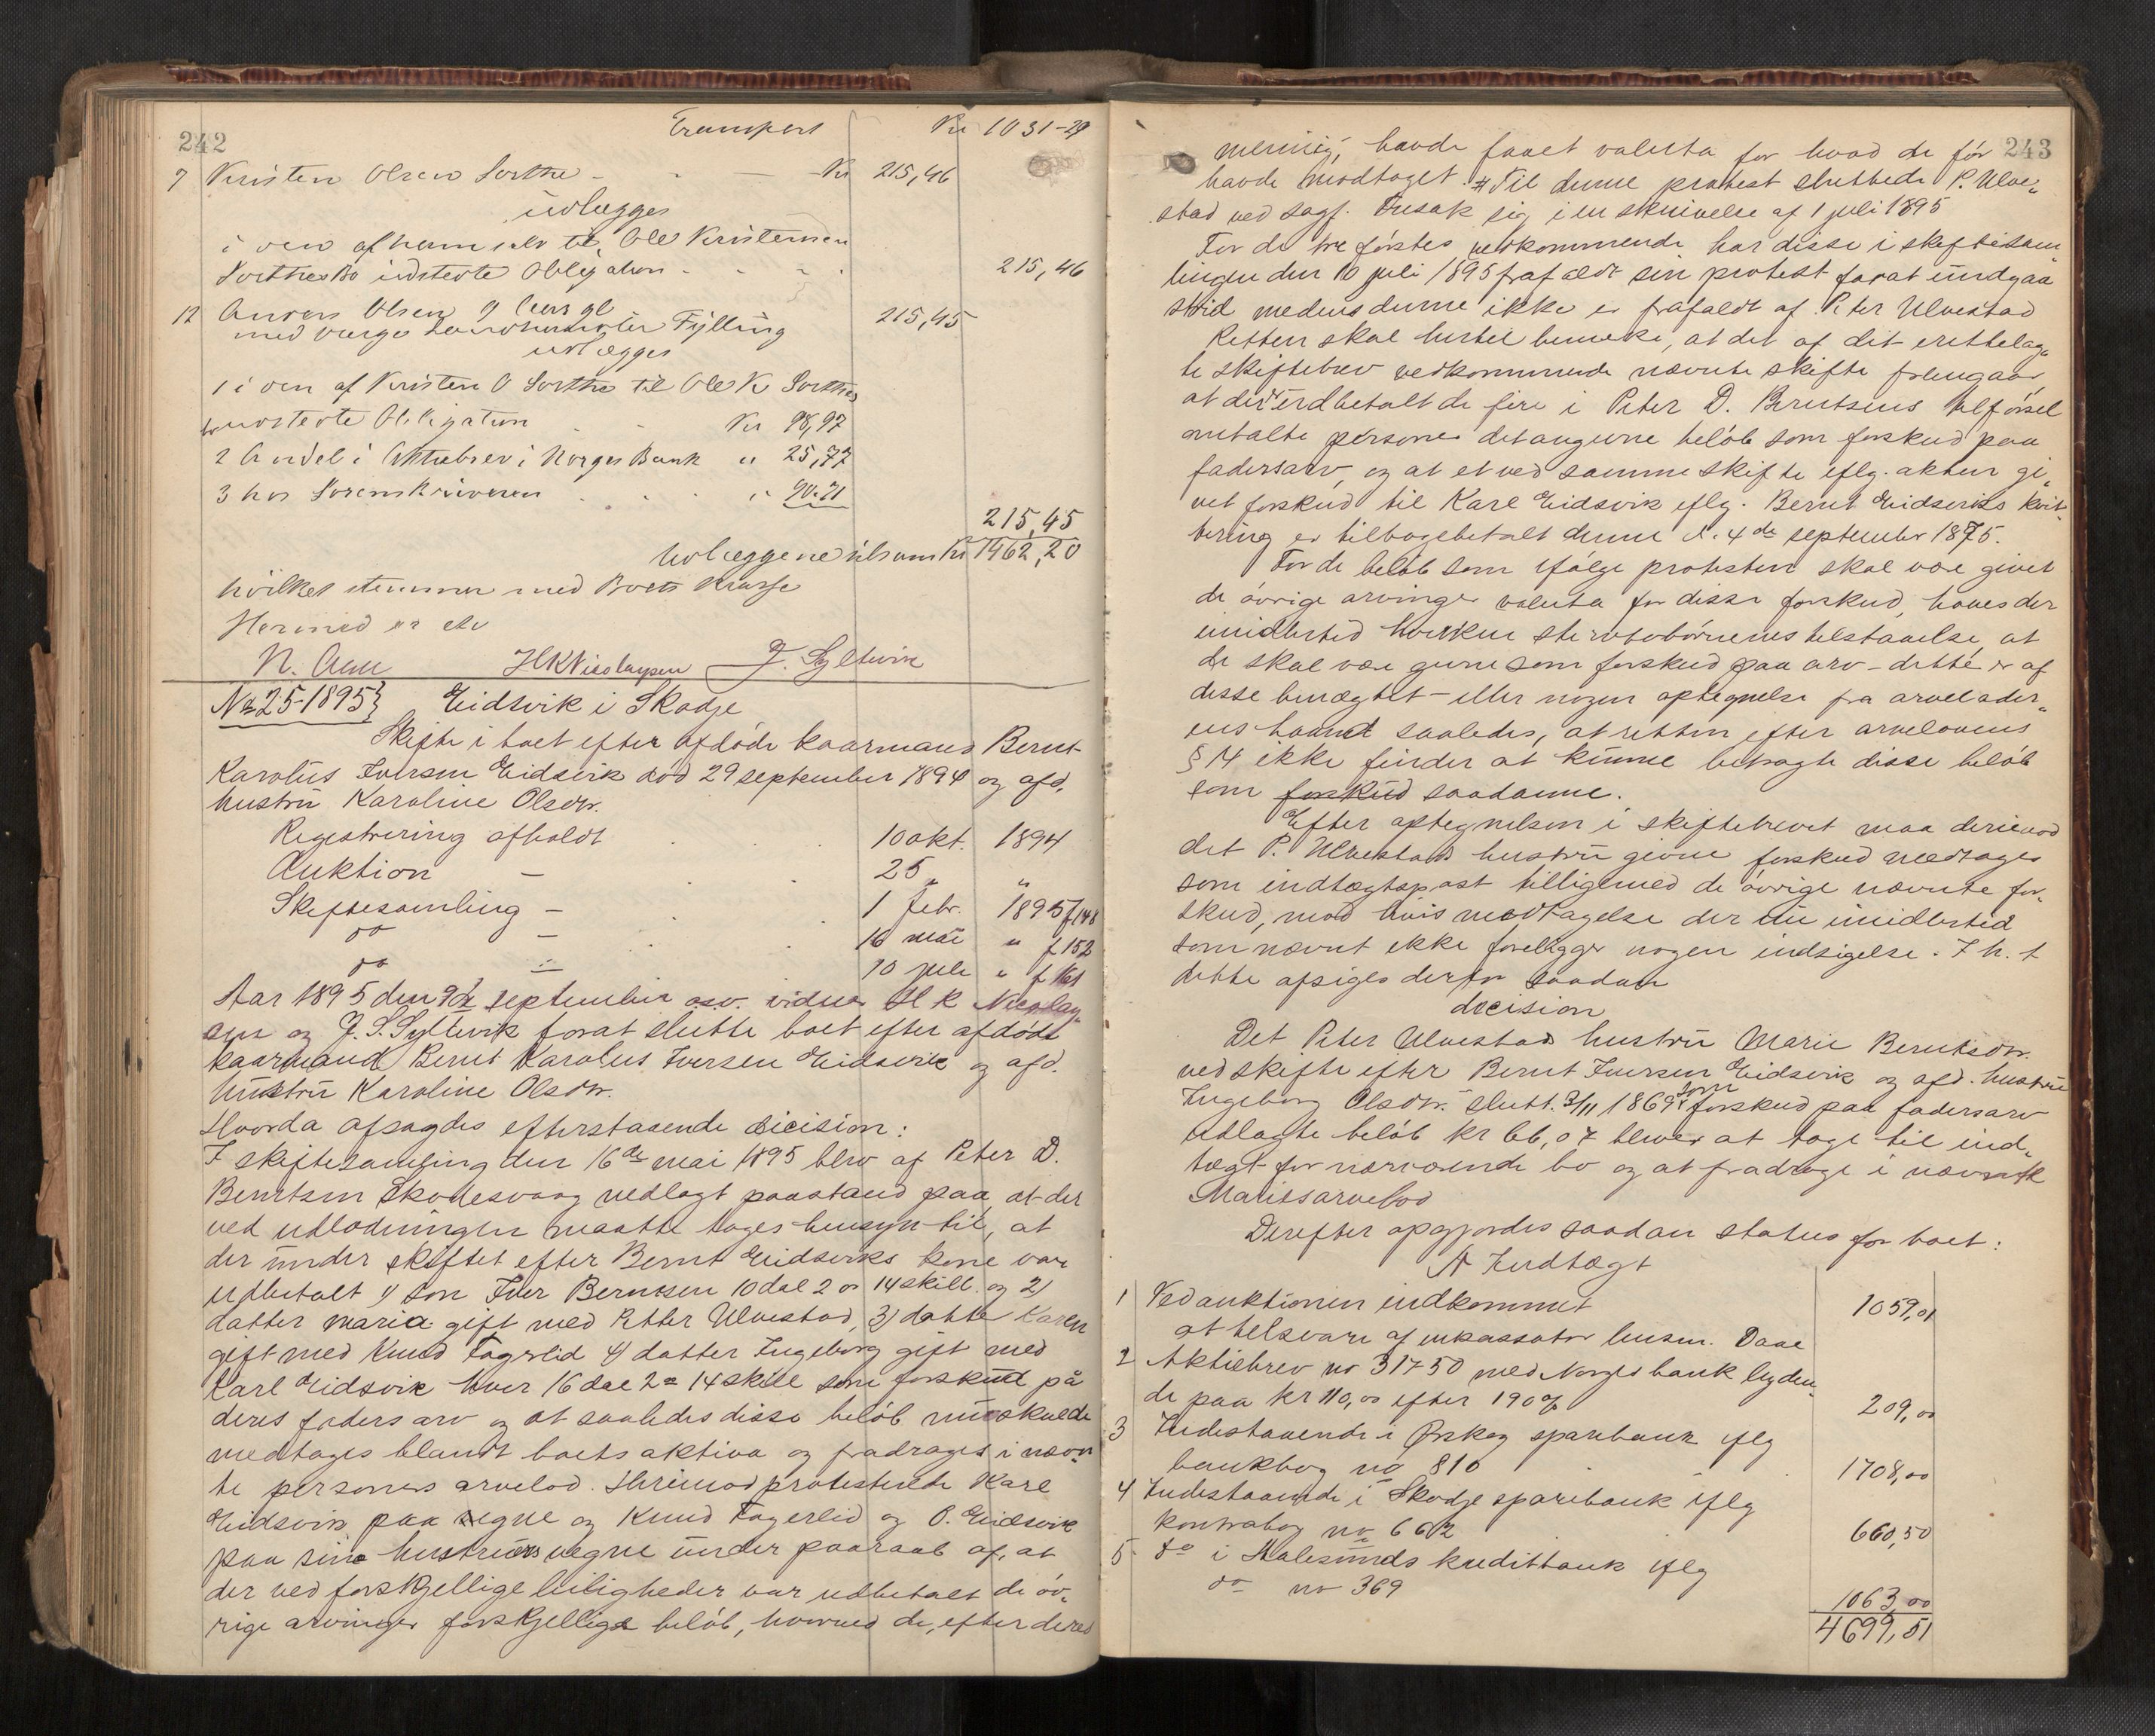 242
Transport Kr 1031-29
7 Kristen Olsen Sorthe - - Kr 215,46
udlægges
i den af ham selv til Ole Kristensen
Sorthesbø udstedte Obligation - - - 215,46
12 Anders Olsen 9 Aar gl
med værge Handelsmand Fylling 215,45
udlægges
1 i den af Kristen O Sorthe til Ole K Sorthes
bø udstedte Obligation Kr 98,97
2 Andel i Aktiebrev i Norges Bank " 25,77
3 hos Sorenskriveren " 90.71
215,45
Udlæggene tilsam Kr 1462,20
hvilket stemmer med Boets Masse
Hermed er etc
N. Aau HKNicolaysen J. Syltevik
No 25-1895} Eidsvik i Skodje
Skifte i boet efter afdøde kaarmand Bernt
Karolus Iversen Eidsvik død 29 september 1894 og afd.
hustru Karoline Olsdtr.
Registrering afholdt 10 okt. 1894
Auktion - 25 " "
Skiftesamling - 1 febr. 1895 f 148
do - 16 mai " f 152
do - 10 juli " f 161
Aar 1895 den 9de september osv. vidner H K Nicolay-
sen og J. S. Syltevik forat slutte boet efter afdøde
kaarmand Bernt Karolus Iversen Eidsvik og afd.
hustru Karoline Olsdtr.
Hvorda afsagdes efterstaaende decision:
I skiftesamling den 16de mai 1895 blev af Peter D.
Berntsen Skodesvaag nedlagt paastand paa, at der
ved udlodningen maatte tages hensyn til, at
der under skiftet efter Bernt Eidsviks kone var
udbetalt 1) søn Iver Berntsen 10 dal 2 or 14 skill. og 2)
datter Maria gift med Petter Ulvestad, 3) datter Karen
gift med Knud Fagerlid 4) datter Ingeborg gift med
Karl Eidsvik hver 16 dal 2 or 14 skill som forskud på
deres fadersarv og at saaledes disse beløb nu skulde
medtages blandt boets aktiva og fradrages i nævn-
te personers arvelod. Herimod protesterede Karl
Eidsvik paa egne og Knud Fagerlid og P. Eidsvik
paa sine hustruers vegne under paaraab af, at
der ved forskjellige leiligheder var udbetalt de øv-
rige arvinger forskjellige beløb, hvorved de, efter deres
243
mening, havde faaet valuta for hvad de før
havde modtaget. Til denne protest sluttede P. Ulve-
stad ved sagf. Fusak sig i en skrivelse af 1 juli 1895
For de tre førstes vedkommende har disse i skiftesam-
lingen den 10 juli 1895 frafaldt sin protest forat undgaa
strid medens denne ikke er frafaldt af Peter Ulvestad
Retten skal hertil bemerke, at det af det fremlag-
te skiftebrev vedkommende nævnte skifte fremgaar,
at der er udbetalt de fire i Peter D. Berntsens tilførsel
omtalte personer det angivne beløb som forskud paa
fadersarv, og at et ved samme skifte iflg. akten gi-
vet forskud til Karl Eidsvik iflg. Bernt Eidsviks kvit-
tering er tilbagebetalt denne d. 4de september 1875.
For de beløb som ifølge protesten skal være givet
de øvrige arvinger valuta for disse forskud, haves der
imidlertid hverken stervbobørnenes tilstaaelse, at
de skal være givne som forskud paa arv - dette er af
disse benægtet - eller nogen optegnelse fra arvelader-
ens haand saaledes, at retten efter arvelovens
§ 14 ikke finder at kunne betragte disse beløb
som forskud saadanne.
Efter optegnelsen i skiftebrevet maa derimod
det P. Ulvestads hustru givne forskud medtages
som indtægtspost tilligemed de øvrige nævnte for-
skud, mod hvis medtagelse der nu imidlertid
som nævnt ikke foreligger nogen indsigelse. I h. t
dette afsiges derfor saadan
decision
Det Peter Ulvestads hustru Marie Berntsdtr.
ved skifte efter Bernt Iversen Eidsvik og afd. hustru
Ingeborg Olsdtr. slutt. 3/11 1869 som forskud paa fadersarv
udlagte beløb kr 66,07 bliver at tage til ind-
tægt for nærværende bo og at fradrage i nævnte
Maries arvelod
Derefter opgjordes saadan status for boet:
A Indtægt
1 Ved auktionen indkommet 1059,01
at tilsvare af inkassator husm. Daae
2 Aktiebrev no 31750 med Norges bank lyden-
de paa kr 110,00 efter 190 % 209,00
3 Indestaaende i Ørskog sparebank iflg
bankbog no 810 1708,00
4 Indestaaende i Skodje sparebank iflg
kontrabog no 662 660,50
5 do i Aalesunds kreditbank iflg
do no 369 1063,00
4699,51